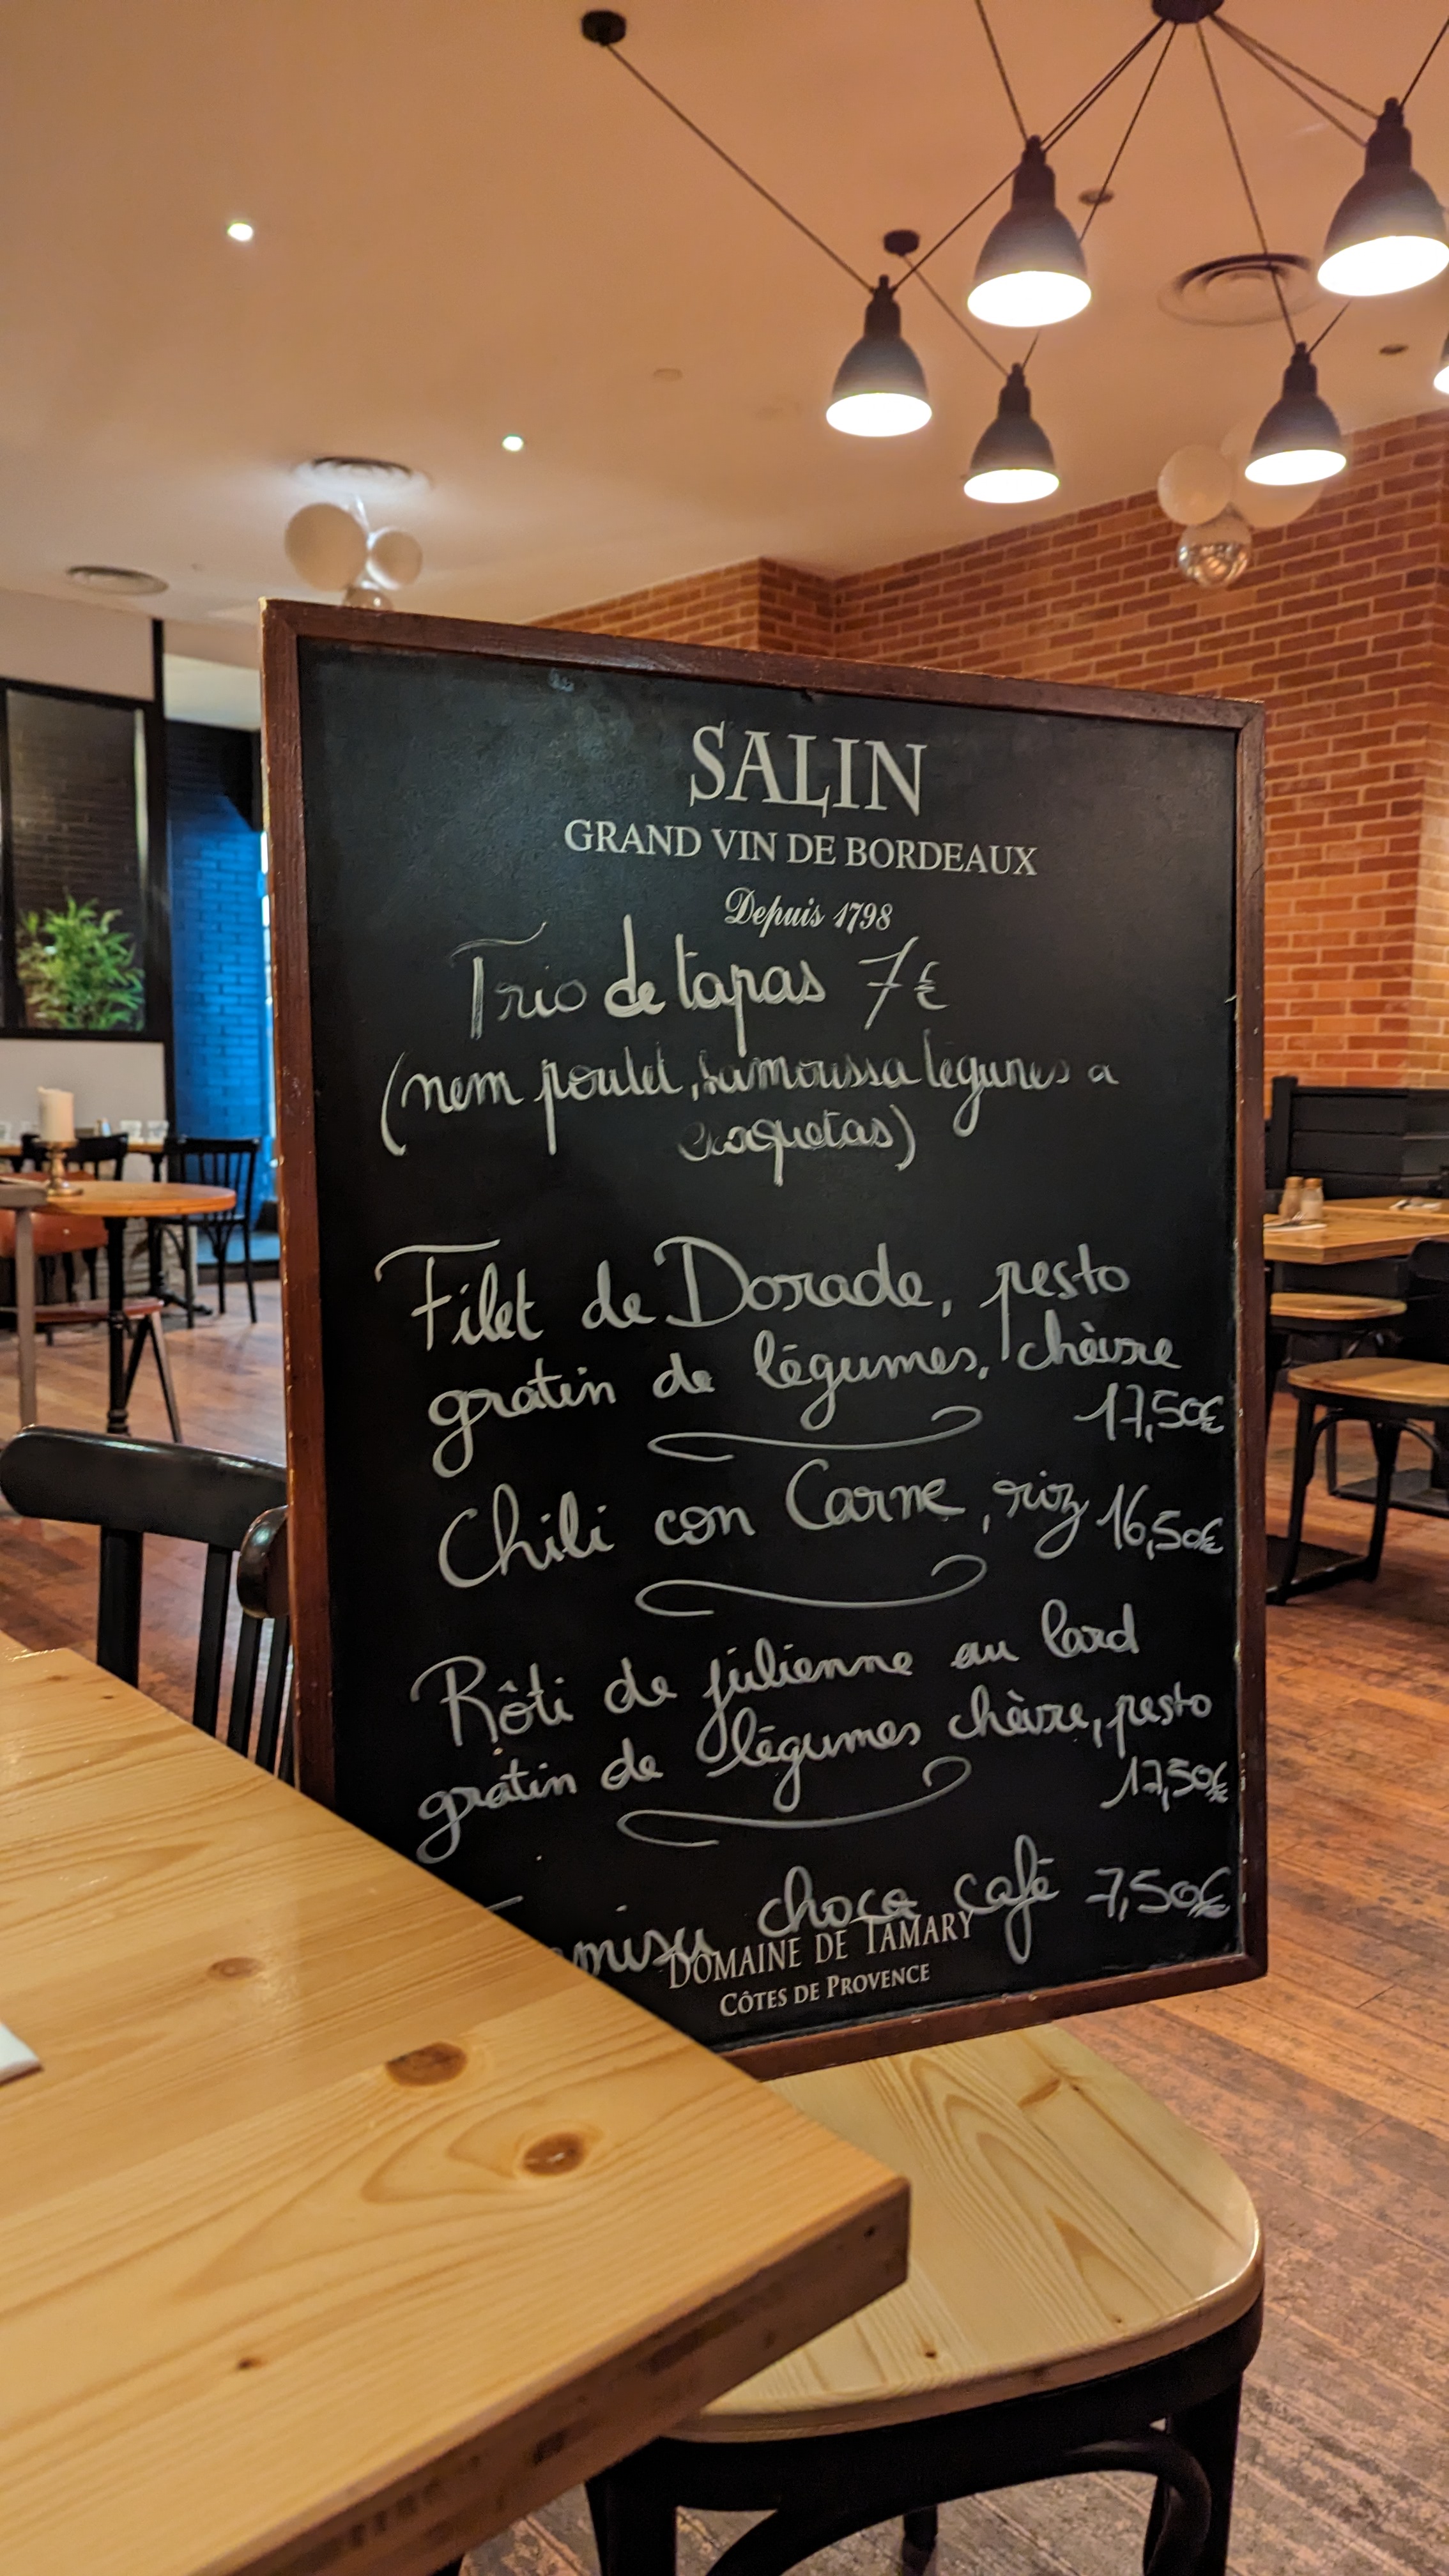 SALIN
GRAND VIN DE BORDEAUX
Depuis 1798
Trio de tapas 7€
(nem poulet, samoussa légumes
croquetas)
Filet de Dorade, pesto
gratin de légumes, chèvre
17,50€
Chili con Carne, riz 16,50€
Rôti de julienne au lard
gratin de légumes chèvre, pesto
17,50€
misu choco café 7,50€
DOMAINE DE TAMARY
CÔTES DE PROVENCE